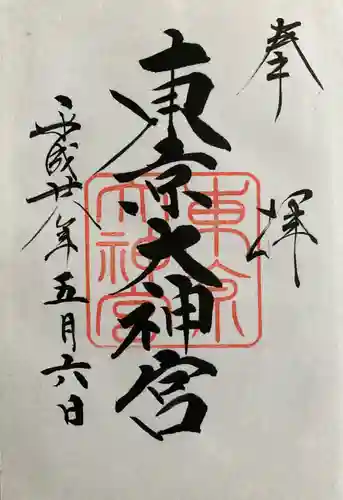 奉拝
東京大神宮
平成廿八年五月六日
東京大神宮